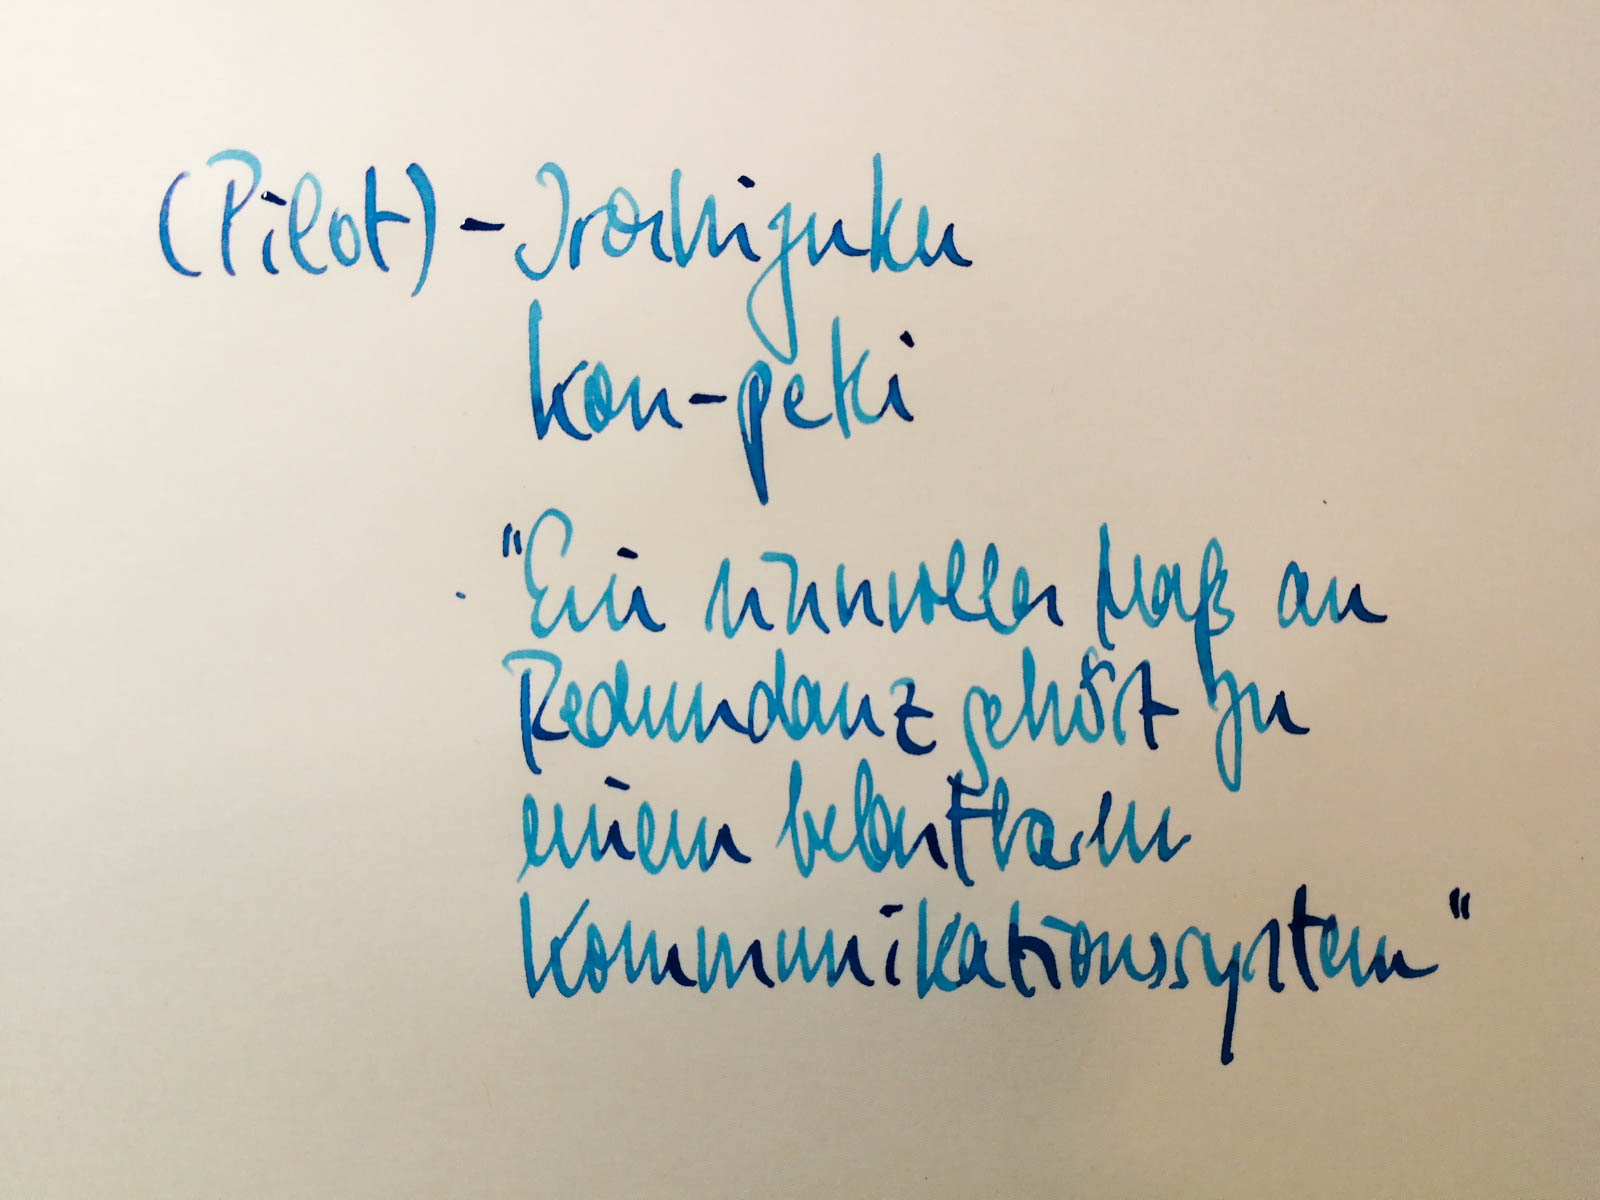 (Pilot) - Iroshizuku
kon-peki
"Ein sinnvolles Maß an
Redundanz gehört zu
einem belastbaren
Kommunikationssystem"